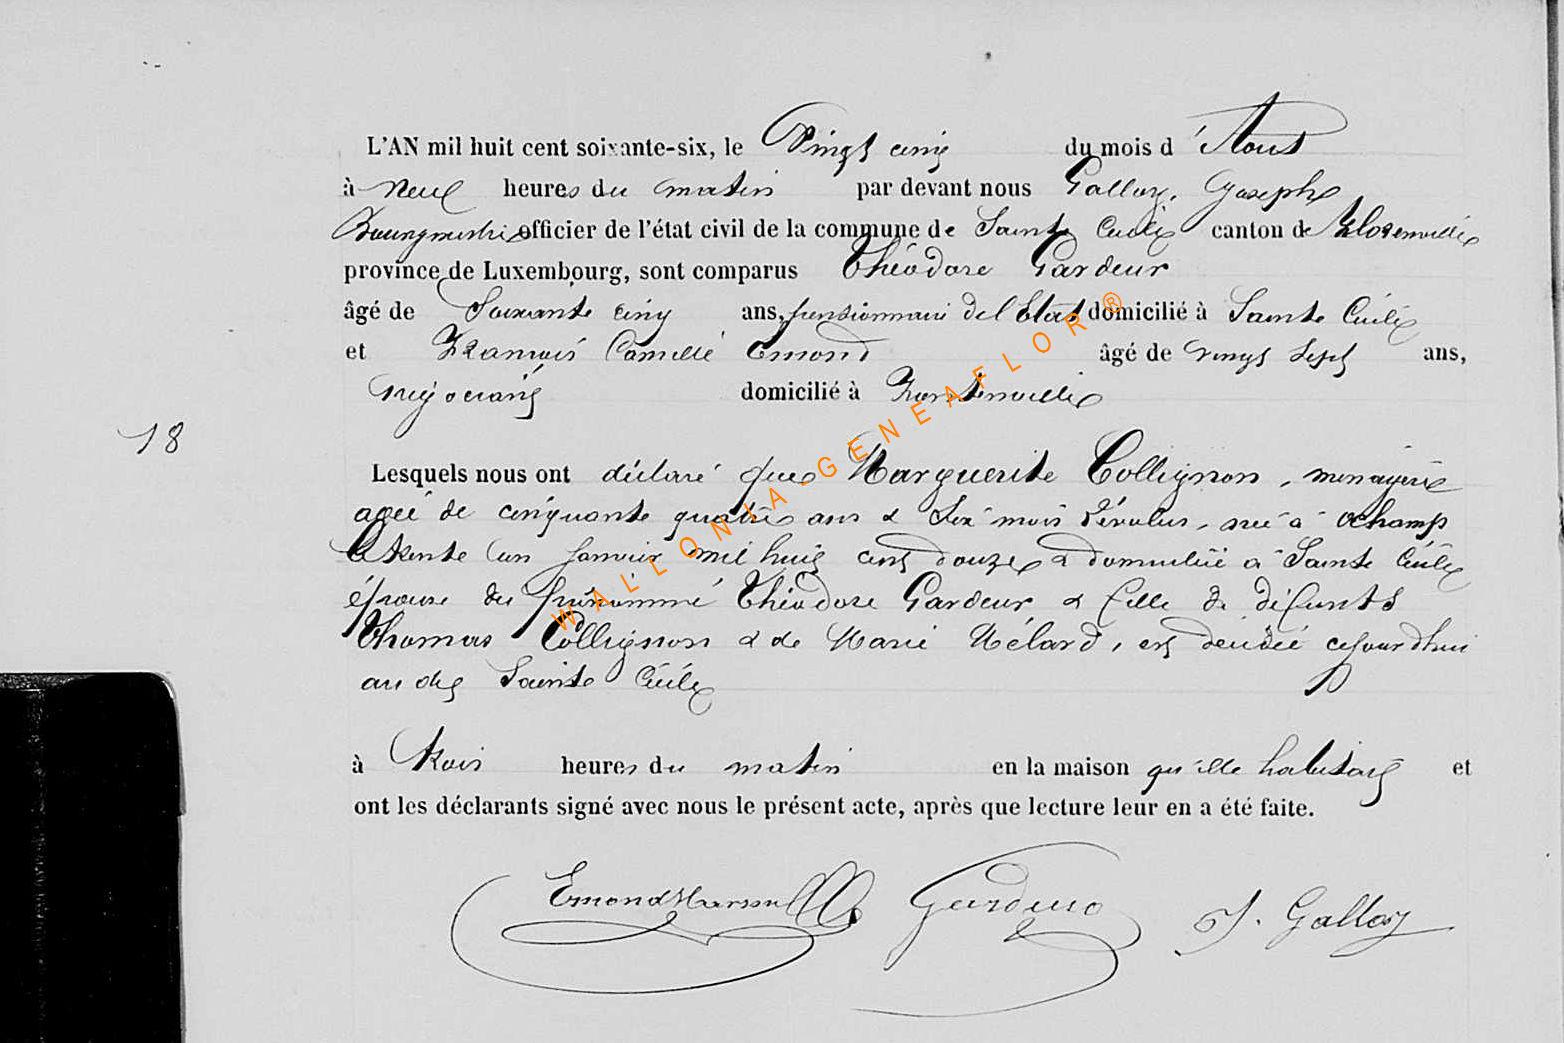 L'AN mil huit cent soixante-six, le Vingt cinq du mois d'Aout
à neuf heures du matin par devant nous Galloy, Joseph
Bourgmestre officier de l'état civil de la commune de Sainte Cécile canton de Florenville
province de Luxembourg, sont comparus Théodore Gardeur
âgé de Soixante cinq ans, pensionnaire de l'Etat domicilié à Sainte Cécile
et François Camille Emond âgé de vingt sept ans,
négociant domicilié à
18
Lesquels nous ont déclaré que Marguerite Collignon, menagère
agée de cinquante quatre ans & six mois révolus, née à Ochamp
le trente un Janvier mil huit cent douze & domiciliée à Sainte Cécile
épouse du prénommé Théodore Gardeur & fille de défunts
Thomas Collignon & de Marie Mélard, est décédée cejourd'hui
au dit Sainte Cécile
à trois heures du matin en la maison qu'elle habitait et
ont les déclarants signé avec nous le présent acte, après que lecture leur en a été faite.
Emond Gardeur J. Galloy
WALLONIA-GENEAFLOR®